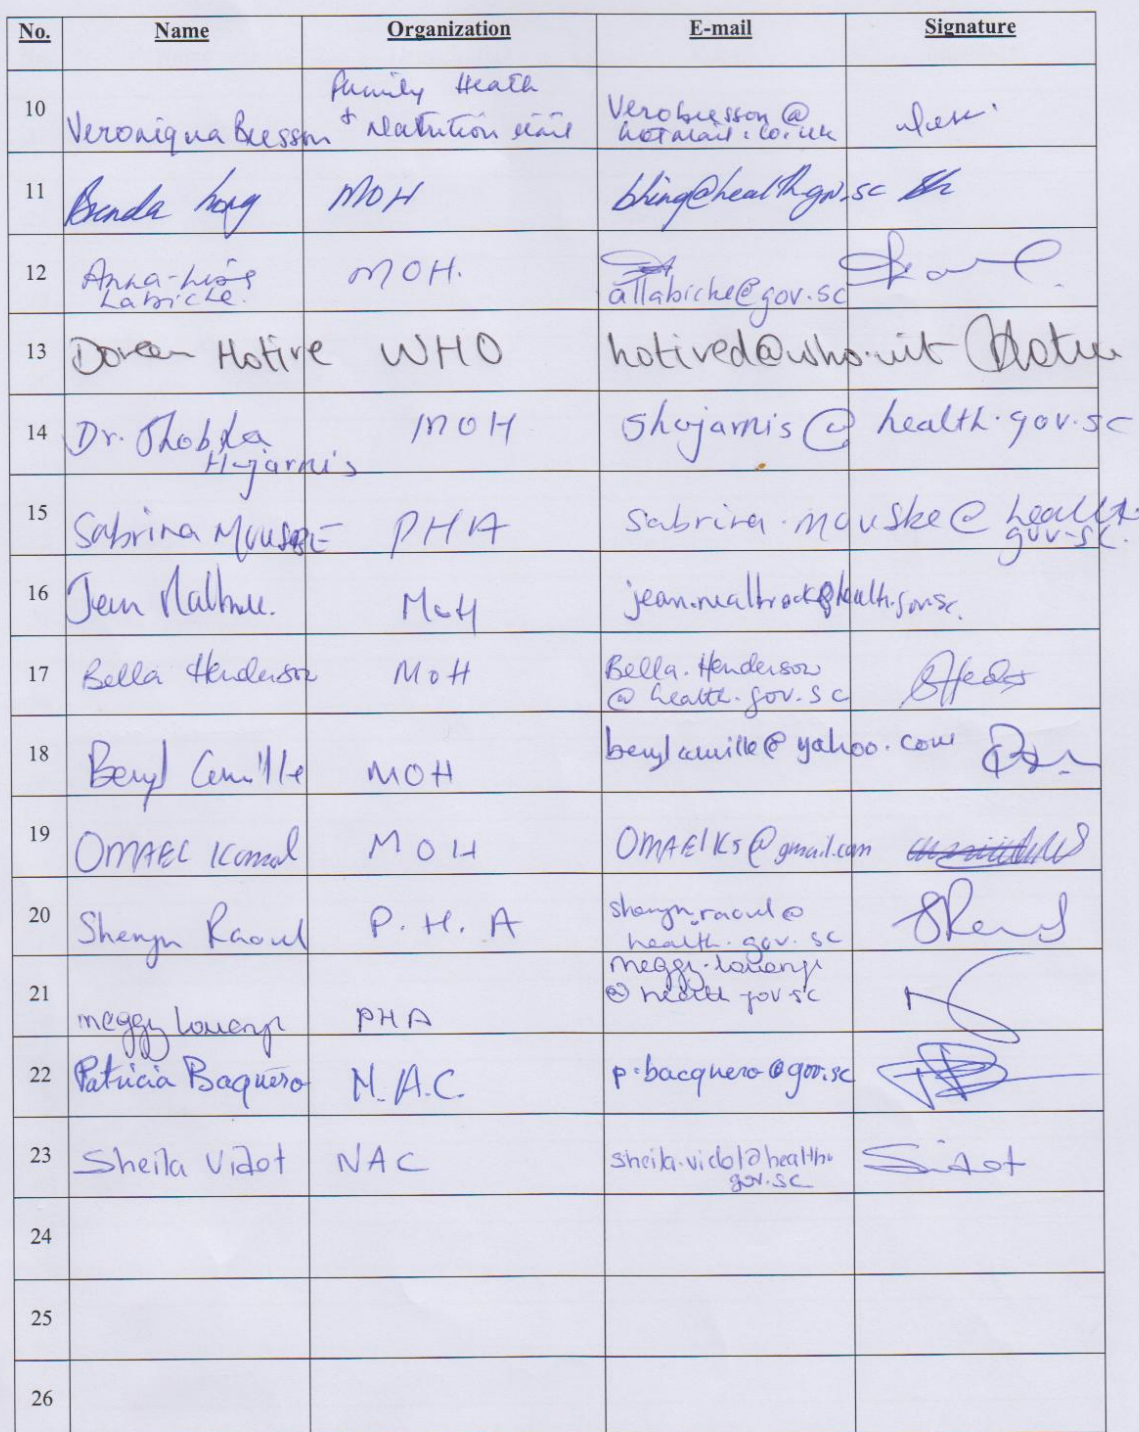 No. Name Organization E-mail Signature
10 Veroniqua Bresson Family Heath + Nutrition Verobresson@ hotmail.co.uk
11 Brenda MOH bhing@health.gov.sc
12 Anna-Lisa Labiche. MOH. allabiche@gov.sc
13 Doreen Hotive WHO hotived@who.int
14 Dr. Shobha Hajarnis MOH Shajarnis@health.gov.sc
15 Sabrina MOUSBE PHA sabrina.mousbe@health.gov.sc.
16 Jean MoH jean.malbrook@health.gov.sc.
17 Bella Henderson MoH Bella.Henderson @health.gov.sc
18 Beryl Camille MOH berylcamille@yahoo.com
19 OMAEL Kamal MOH OMAElKs@gmail.com
20 Sheryn Raoul P.H.A sheryn.raoul@ health.gov.sc SRaoul
21 meggy PHA meggy. @health gov sc
22 Patricia Baquero N.A.C. p.bacquero@gov.sc
23 Sheila Vidot NAC sheila.vidot@health. gov.sc SVidot
24
25
26